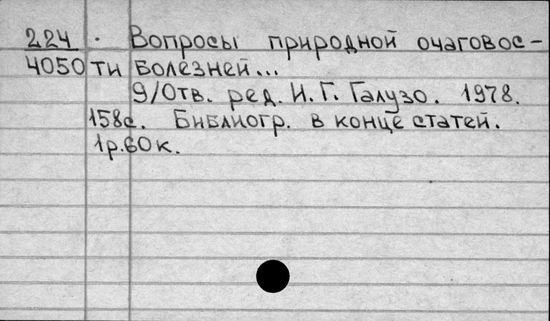 224 . Вопросы природной очаговос-
4050 ти болезней...
9/Отв. ред. И. Г. Галузо. 1978.
158с. Библиогр. в конце статей.
1р.60к.